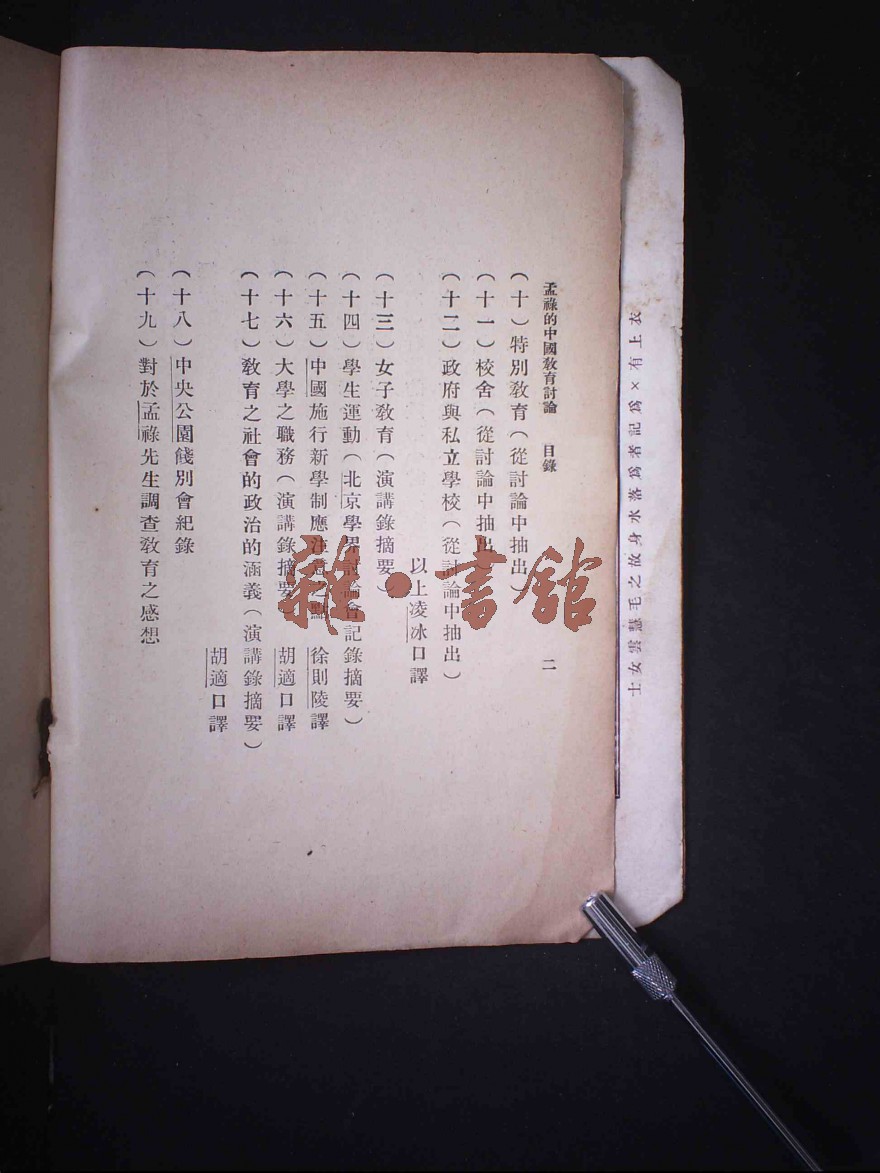 孟祿的中國教育討論　目錄　二
（十）特別教育（從討論中抽出）
（十一）校舍（從討論中抽出
（十二）政府與私立學校（從討論中抽出）
以上凌冰口譯
（十三）女子教育（演講錄摘要）
（十四）學生運動（北京學界討論會記錄摘要）
（十五）中國施行新學制應注意點　徐則陵譯
（十六）大學之職務（演講錄摘要　胡適口譯
（十七）教育之社會的政治的涵義（演講錄摘要）
胡適口譯
（十八）中央公園餞別會紀錄
（十九）對於孟祿先生調查教育之感想
衣上有×為記者為落水身故之毛慧雲女士
雜·書館